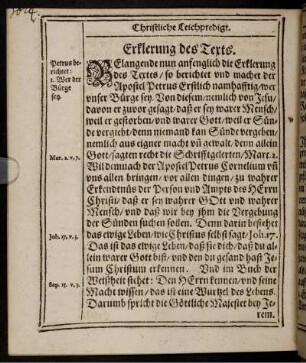 Christliche Leichpredigt.
Erklerung des Texts.
Petrus be-
richtet:
1. Wer der
Bürge
sey.
BElangende nun anfenglich die Erklerung
des Textes / so berichtet vnd machet der
Apostel Petrus Erstlich namhafftig / wer
vnser Bürge sey. Von diesem / nemlich von Jesu /
dauon er zuvor gesagt / daß er sey warer Mensch /
weil er gestorben / vnd warer Gott / weil er Sün-
de vergiebt / denn niemand kan Sünde vergeben /
nemlich aus eigner macht vñ gewalt, denn allein
Mar. 2. v. 7.
Gott / sagten recht die Schrifftgelerten / Marc. 2.
Wil demnach der Apostel Petrus Cornelium vñ
vns allen bringen / vor allen dingen / zu wahrer
Erkendtnüs der Person vnd Ampts des HErrn
Christi / daß er sey wahrer GOtt vnd wahrer
Mensch / vnd daß wir bey jhm die Vergebung
der Sünden suchen sollen. Denn darin bestehet
Joh. 17. v. 3.
das ewige Leben / wie Christus selbst sagt / Joh. 17.
Das ist das ewige Leben / daß sie dich / daß du al-
lein warer Gott bist / vnd den du gesand hast Je-
sum Christum erkennen. Vnd im Buch der
Sap. 15. v. 3.
Weißheit stehet: Den HErrn kennen / vnd seine
Macht wissen / das ist eine Wurtzel des Lebens.
Darumb spricht die Göttliche Majestet bey Je-
rem.